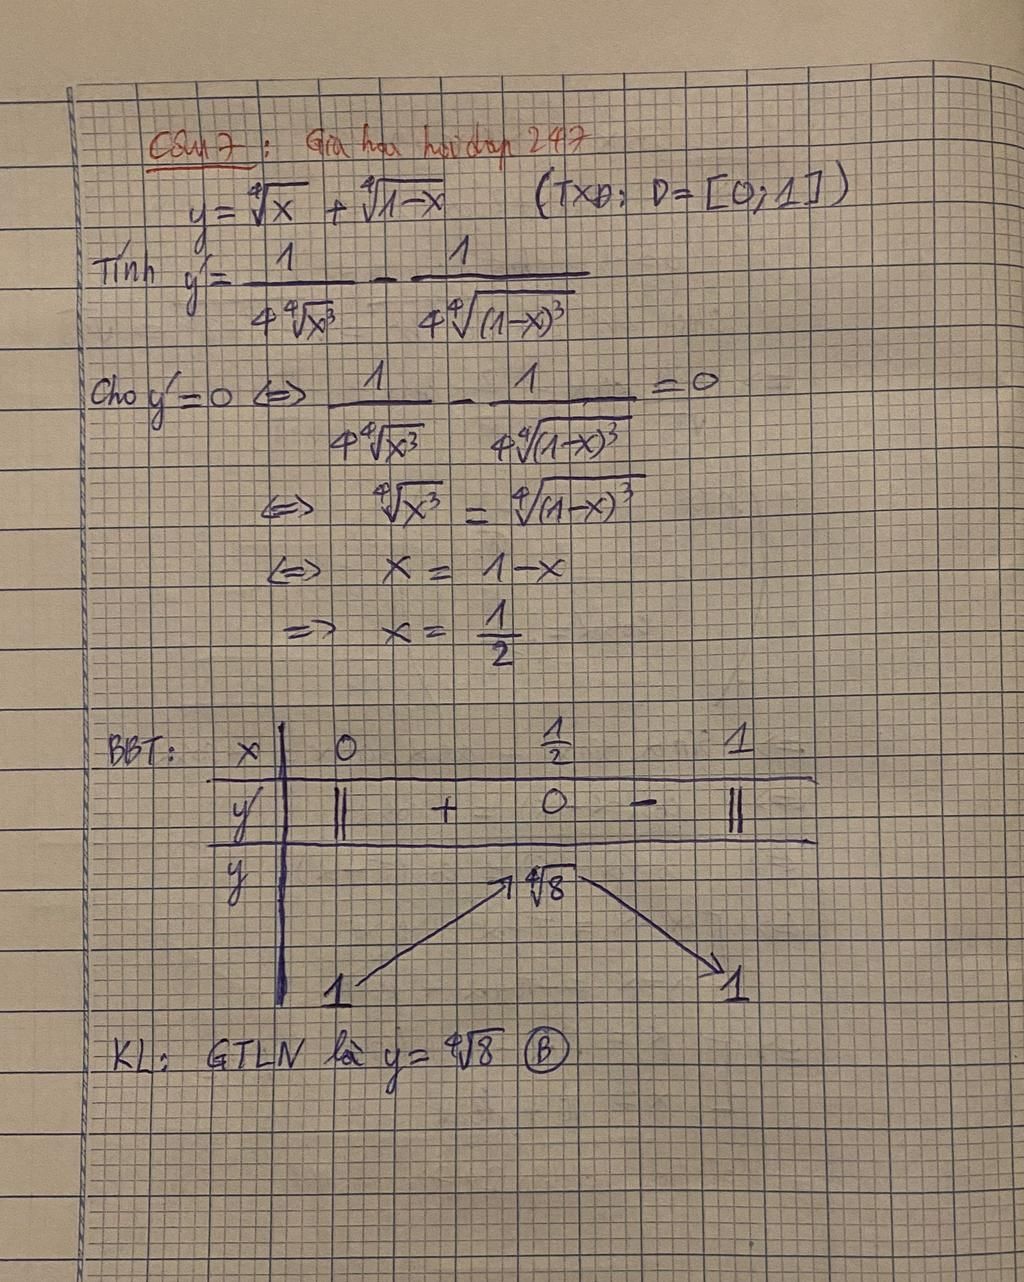 Câu 7: Gia hưu hoidap 247
y = ∜x + ∜(1-x) (TXĐ: D = [0;1])
Tính y' = 1/(4∜x³) - 1/(4∜(1-x)³)
Cho y' = 0 <=> 1/(4∜x³) - 1/(4∜(1-x)³) = 0
<=> ∜x³ = ∜(1-x)³
<=> x = 1-x
=> x = 1/2
BBT: x 0 1/2 1
y' || + 0 - ||
y ∜8
1 1
KL: GTLN là y = ∜8 (B)